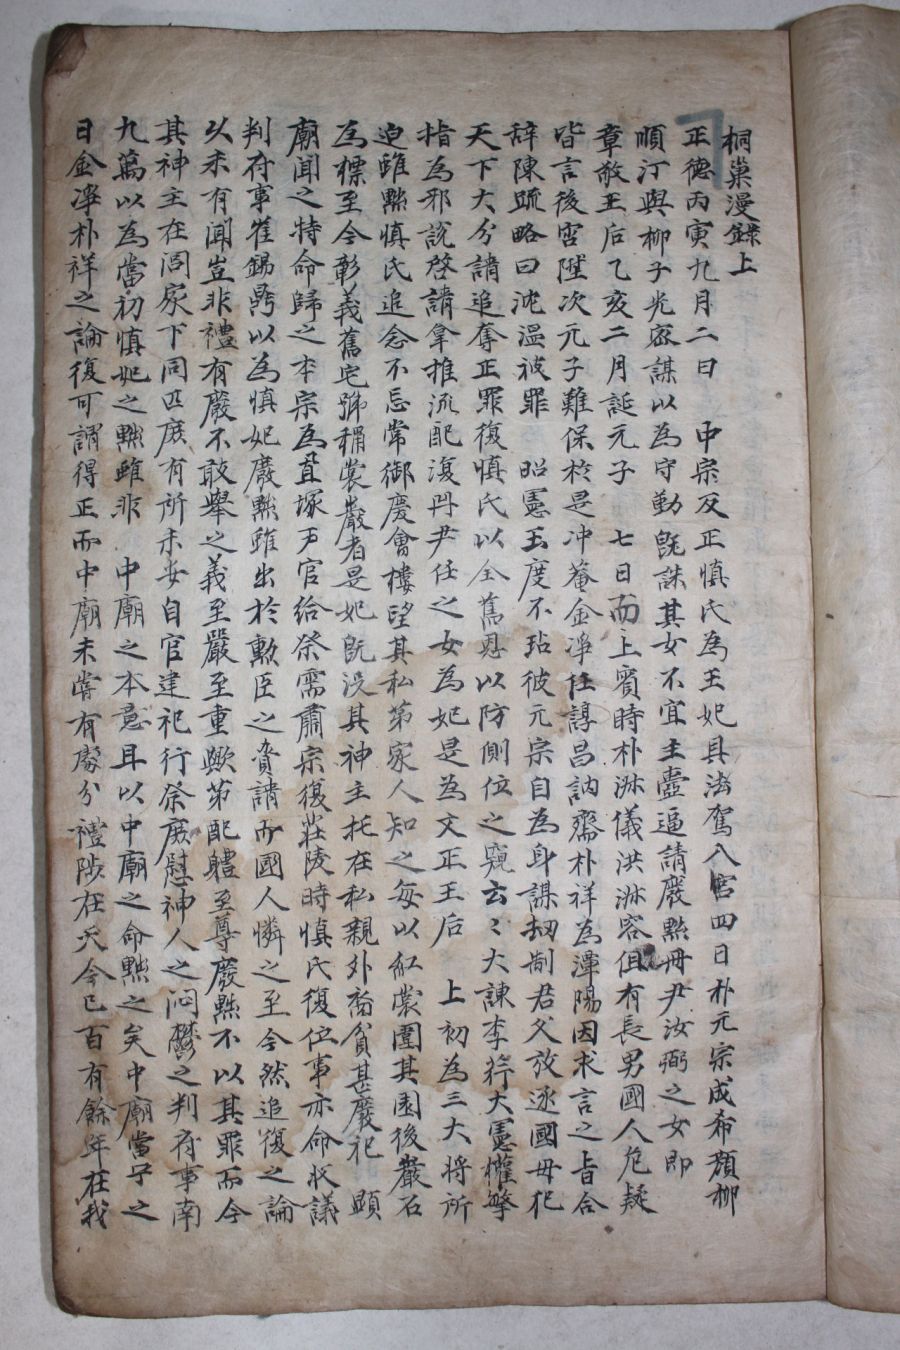 桐巢漫錄上
正德丙寅九月二日 中宗反正愼氏為王妃具法駕入宮四日朴元宗成希顔柳
順汀與柳子光密謀以為守勤旣誅其女不宜主壼逼請廢黜冊尹汝弼之女卽
章敬王后乙亥二月誕元子 七日而上賓時朴淑儀洪淑容俱有長男國人危疑
皆言後宮陞次元子難保於是冲菴金淨任諄昌訥齋朴祥為潭陽因求言之旨合
辞陳䟽略曰沈溫被罪 昭憲玉度不玷彼元宗自為身謀刼制君父放逐國母犯
天下大分請追奪正罪復愼氏以全舊恩以防側位之窺云〻大諫李荇大憲權擎
指為邪說啓請拿推流配復冊尹任之女為妃是為文正王后 上初為三大將所
迫雖黜愼氏追念不忘常御慶會樓望其私第家人知之每以紅裳圍其園後巖石
為標至今彰義舊宅號稱裳巖者是妃旣沒其神主托在私親外裔貧甚廢祀 顯
廟聞之特命歸之本宗為置塚戶官給祭需肅宗復莊陵時愼氏復位事亦命収議
判府事崔錫鼎以為愼妃廢黜雖出於勲臣之脅請而國人憐之至今然追復之論
以未有聞豈非禮有嚴不敢擧之義至嚴至重歟第配體至尊廢黜不以其罪而今
其神主在閭家下同匹庶有所未安自官建祀行祭庶慰神人之悶鬱之判府事南
九萬以為當初愼妃之黜雖非 中廟之本意耳以中廟之命黜之矣中廟當宁之
日金淨朴祥之論復可謂得正而中廟未嘗有處分禮陟在天今已百有餘年在我